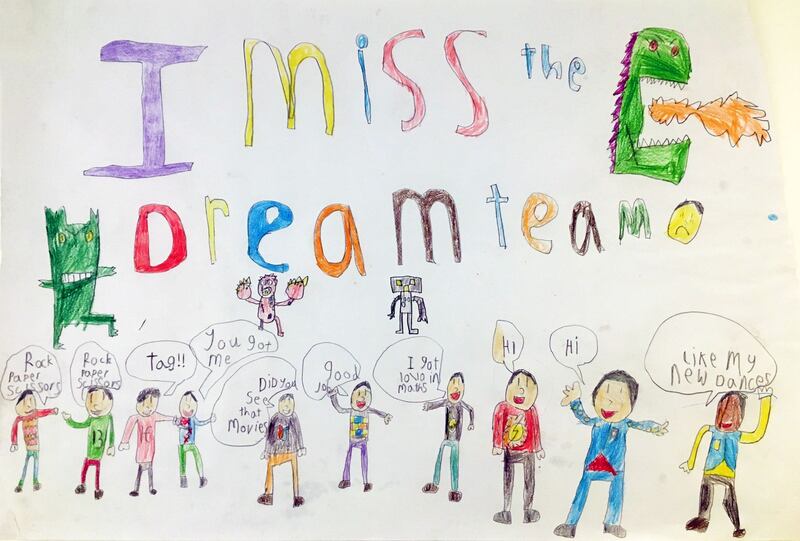 I miss the
Dream team
Rock
Paper
Scissors
Rock
Paper
Scissors
Tag!!
You got
me
DID you
See
that
Movies
good
Job
I got
1000 in
maths
Hi
Hi
Like My
New Dances
13